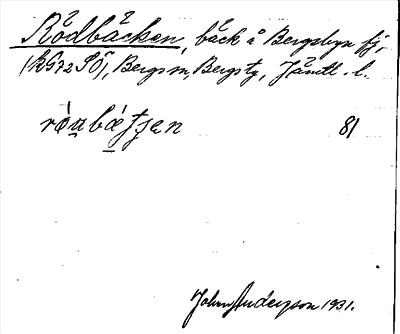 Rödbäcken, bäck å Bergsbyn fj,
(kG72SÖ), Bergs sn, Bergs tg, Jämtl. l.
81
John Anderson 1931.